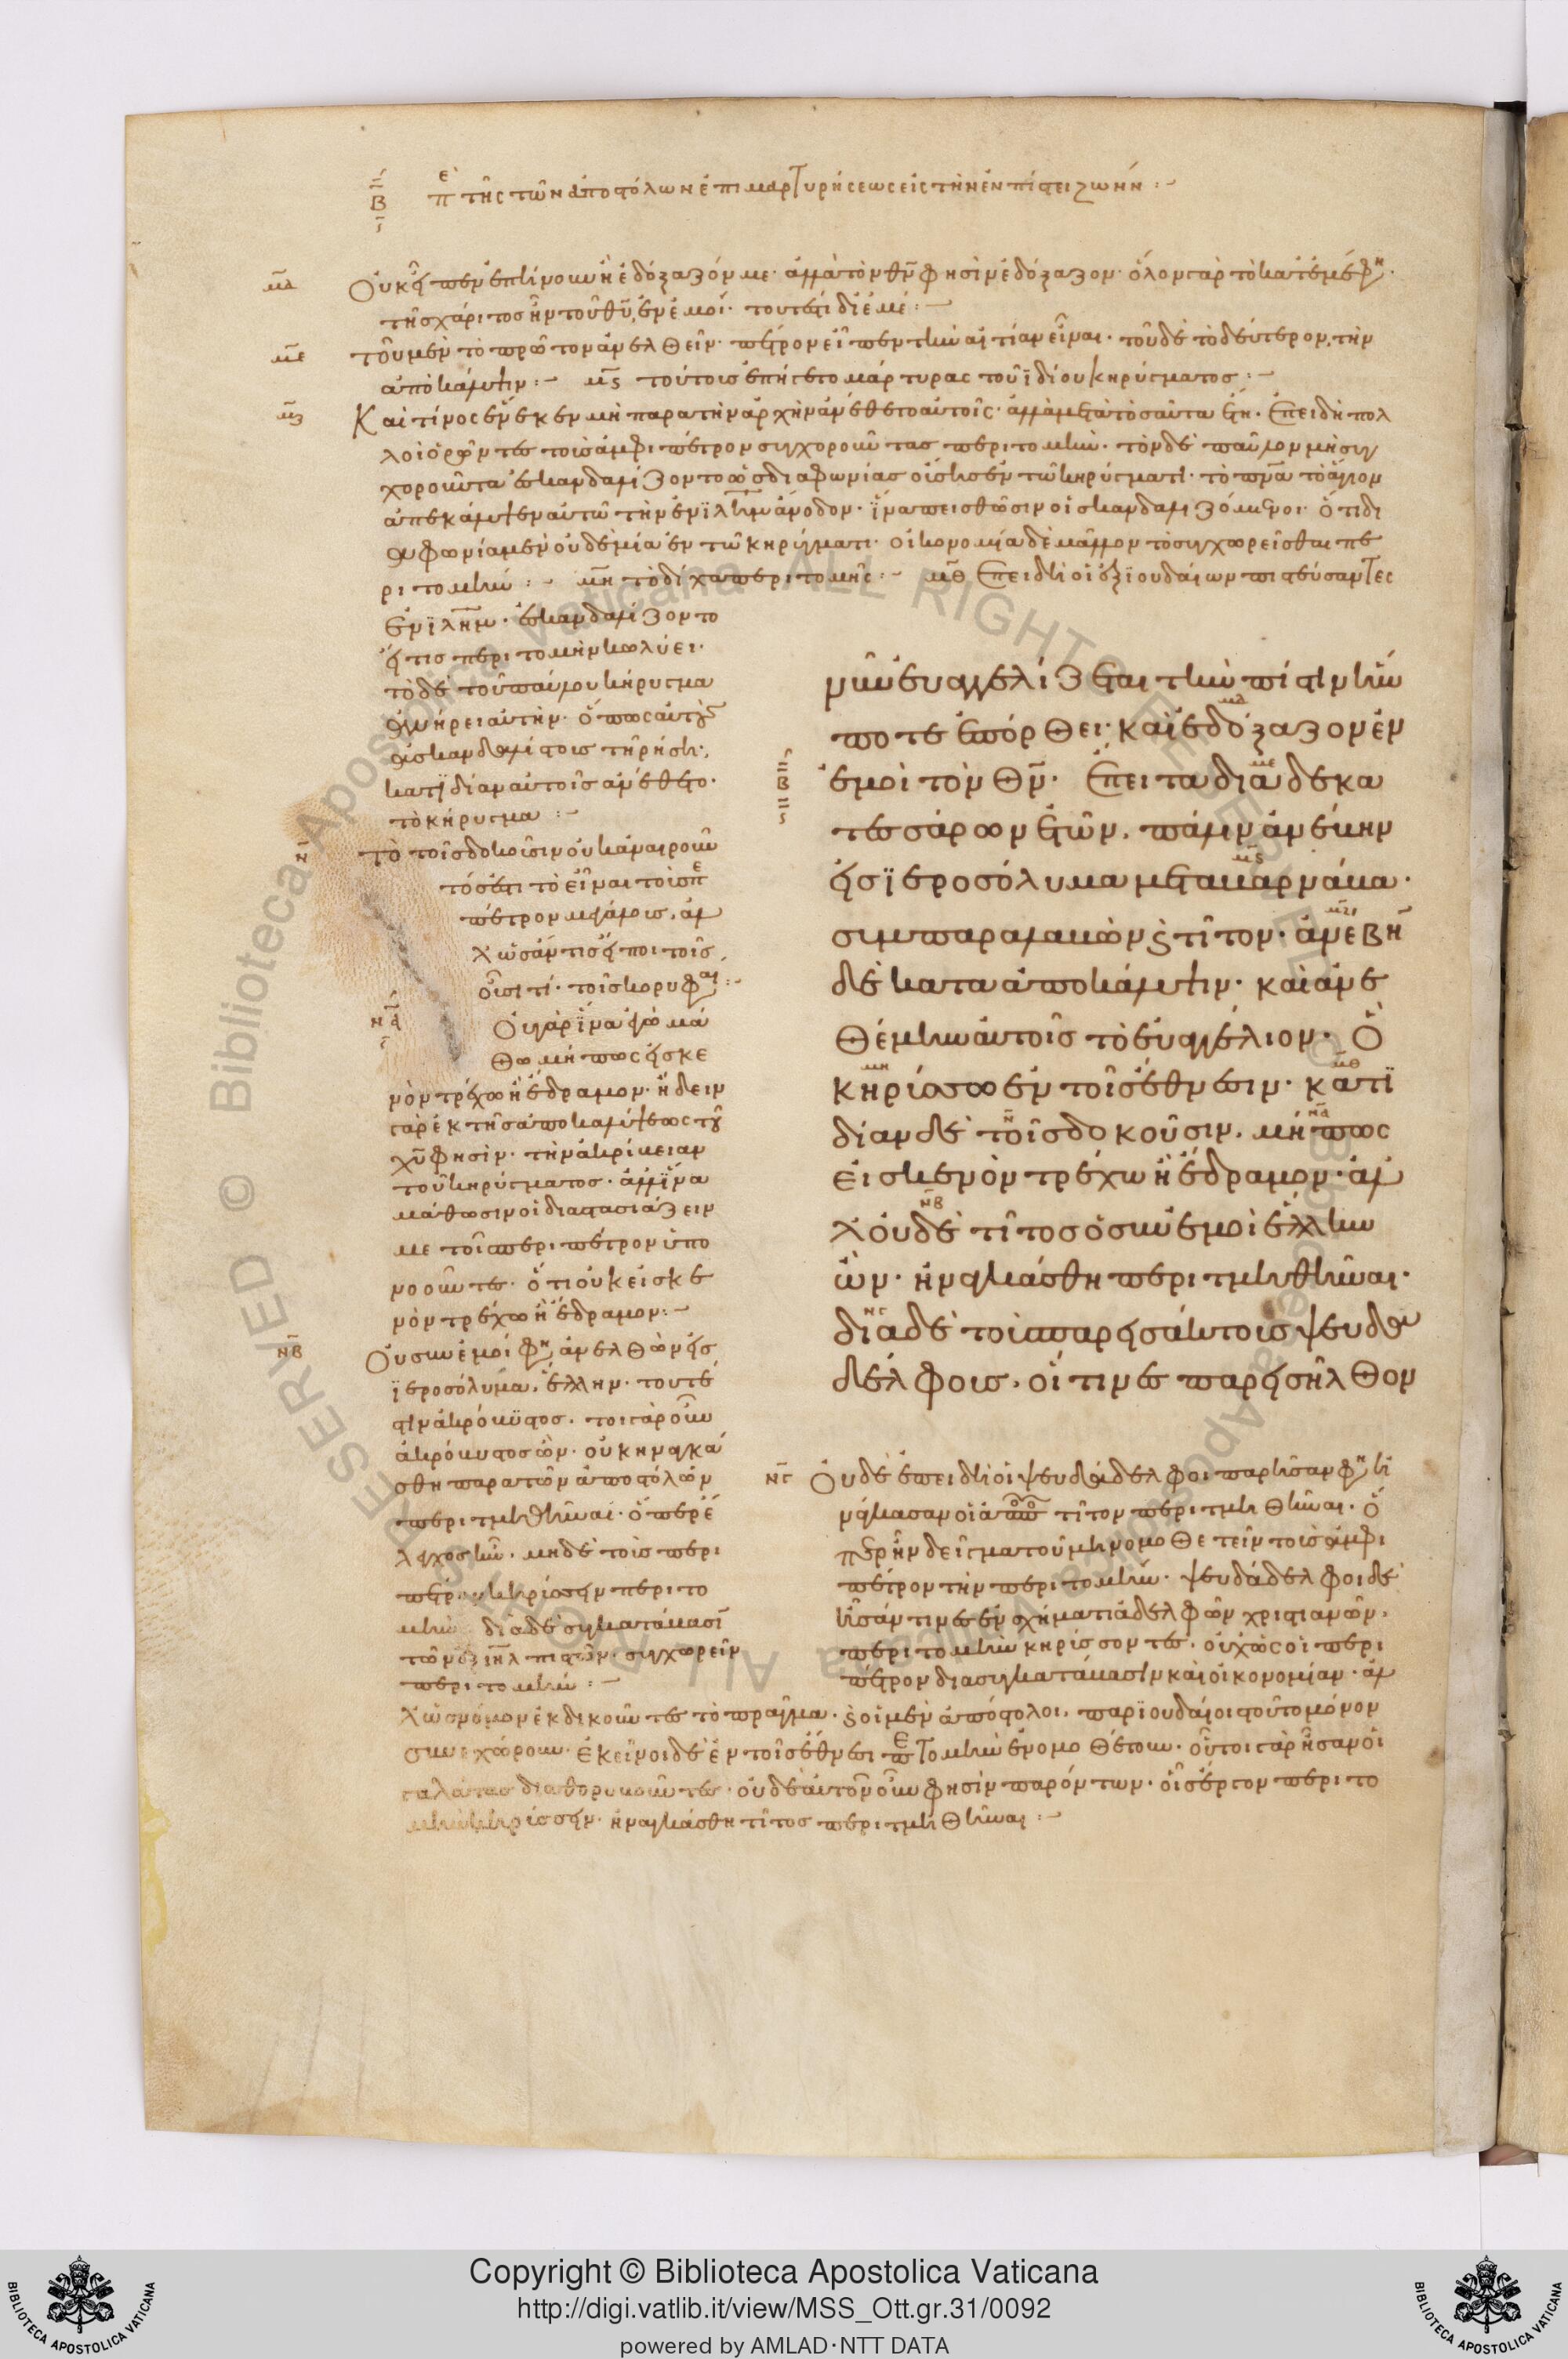 Β πε τῆς τῶν ἀποστόλων ἐπιμαρτυρήσεως εἰς τὴν ἐν πίστει ζωήν :~
μδ Οὐκ εἶπεν ἐπήνουν ἢ ἐδόξαζόν με· ἀλλὰ τὸν θν φησὶν ἐδόξαζον· ὅλον γὰρ τὸ κατ ἐμέ φη·
τῆς χάριτος ἦν τοῦ θυ, ἐν ἐμοί· τουτέστι δι ἐμέ :~
με τοῦ μὲν τὸ πρῶτον ἀνελθεῖν· πέτρον εἶπεν τὴν αἰτίαν εἶναι· τοῦ δὲ τὸ δεύτερον, τὴν
ἀποκάλυψιν :~ μς τούτους ἐπήγετο μάρτυρας τοῦ ϊδίου κηρύγματος :~
μζ Καὶ τίνος ἕνεκεν μὴ παρὰ τὴν ἀρχὴν ἀνέθετο αὐτοῖς· ἀλλὰ μετὰ τοσαῦτα ἔτη· ἐπειδὴ πολ
λοὶ ὁρῶντες τοὺς ἀμφὶ πέτρον συγχοροῦντας περιτομὴν· τὸν δὲ παῦλον μὴ συγ
χοροῦντα ἐσκανδαλίζοντο ὡς διαφωνίας οὔσης ἐν τῶ κηρύγματι· τὸ πνα τὸ ἅγιον
ἀπεκάλυψεν αὐτῶ τὴν ἐν ϊλημ ἄνοδον· ἵνα πεισθῶσιν οἱ σκανδαλιζόμενοι· ὅτι δι
αφωνία μὲν οὐδεμία ἐν τῶ κηρύγματι· οἰκονομία δὲ μᾶλλον τὸ συγχωρεῖσθαι πε
ριτομήν :~ μη τὸ δίχα περιτομῆς :~ μθ Ἐπειδὴ οἱ ἐξ ϊουδαίων πιστεύσαντες
ἐν ϊλημ· ἐσκανδαλίζοντο
εἴ τις περιτομὴν κωλύει·
τὸ δὲ τοῦ παύλου κήρυγμα
ἀνήρει αὐτὴν· ὅπως αὐτοὺς
ἀσκανδαλίστους τηρήση·
κατ ϊδίαν αὐτοῖς ἀνέθετο·
τὸ κήρυγμα :~
ν τὸ τοῖς δοκοῦσιν οὐκ ἀναιροῦν
τός ἐστι τὸ εἶναι τοὺς πε
πέτρον μεγάλους, ἀλ
λ ὡσάν τις εἴποι τοῖς
οὖσί τι· τοῖς κορυφαί :~
να Οὐ γὰρ ἵνα ἐγὼ μά
θω μήπως εἰς κε
νὸν τρέχω ἢ ἔδραμον· ἤδειν
γὰρ ἐκ τῆς ἀποκαλύψεως τοῦ
χυ φησὶν· τὴν ἀκρίβειαν
τοῦ κηρύγματος· ἀλλ ἵνα
μάθωσιν οἱ διαστασιάζειν
με τοῖς περὶ πέτρον ὑπο
νοοῦντες· ὅτι οὐκ εἰς κε
νὸν τρέχω ἢ ἔδραμον :~
νβ Ὁ σὺν ἐμοί φη ἀνελθὼν εἰς
ϊεροσόλυμα, ἕλλην· τουτέ
στιν ἀκρόβυστος· τοιγαροῦν
ἀκρόβυστος ὢν· οὐκ ἠναγκά
σθη παρὰ τῶν ἀποστόλων
περιτμηθῆναι· ὅπερ ἔ
λεγχος ἦν· μηδὲ τοὺς περὶ
πέτρον κηρύσσειν περιτο
μὴν διὰ δὲ συγκατάβασι
τῶν ἐξ ιηλ πιστῶν· συγχωρεῖν
περιτομήν :~
νῦν εὐαγγελίζεται τὴν πίστιν ἥν
ποτε ἐπόρθει· καὶ ἐδόξαζον ἐν
ἐμοὶ τὸν θν· Ἔπειτα διὰ δεκα
τεσσάρων ἐτῶν, πάλιν ἀνέβην
εἰς ϊεροσόλυμα μετὰ βαρνάβα·
συμπαραλαβὼν καὶ τίτον· ἀνέβην
δὲ κατὰ ἀποκάλυψιν· καὶ ἀνε
θέμην αὐτοῖς τὸ εὐαγγέλιον· ὃ
κηρύσσω ἐν τοῖς ἔθνεσιν· κατϊ
δίαν δὲ τοῖς δοκοῦσιν, μήπως
εἰς κενὸν τρέχω ἢ ἔδραμον· ἀλ
λ οὐδὲ τίτος ὁ σὺν ἐμοὶ ἕλλην
ὢν· ἠναγκάσθη περιτμηθῆναι·
διὰ δὲ τοὺς παρεισάκτους ψευδα
δέλφους, οἵτινες παρεισῆλθον
νγ Οὐδὲ ἐπειδὴ οἱ ψευδάδελφοι παρῆσαν φη ἠ
νάγκασαν οἱ ἀπο τίτον περιτμηθῆναι· ὅ
περ ἦν δεῖγμα τοῦ μὴ νομοθετεῖν τοὺς ἀμφὶ
πέτρον τὴν περιτομὴν· ψευδάδελφοι δὲ
ἦσάν τινες ἐν σχήματι ἀδελφῶν χριστιανῶν,
περιτομὴν κηρύσσοντες· οὐχ ὡς οἱ περὶ
πέτρον διὰ συγκατάβασιν καὶ οἰκονομίαν· ἀλ
λ ὡς νόμον ἐκδικοῦντες τὸ πρᾶγμα· καὶ οἱ μὲν ἀπόστολοι, παρ ϊουδαίοις τοῦτο μόνον
συνεχώρουν· ἐκεῖνοι δὲ ἐν τοῖς ἔθνεσι περιτομὴν ἐνομοθέτουν· οὗτοι γὰρ ἦσαν οἱ
γαλάτας διαθορυβοῦντες· οὐδὲ αὐτῶν οὖν φησὶν παρόντων· οἷς ἔργον περιτο
μὴν κηρύσσειν· ἠναγκάσθη τίτος περιτμηθῆναι :~
Copyright © Biblioteca Apostolica Vaticana
http://digi.vatlib.it/view/MSS_Ott.gr.31/0092
powered by AMLAD·NTT DATA